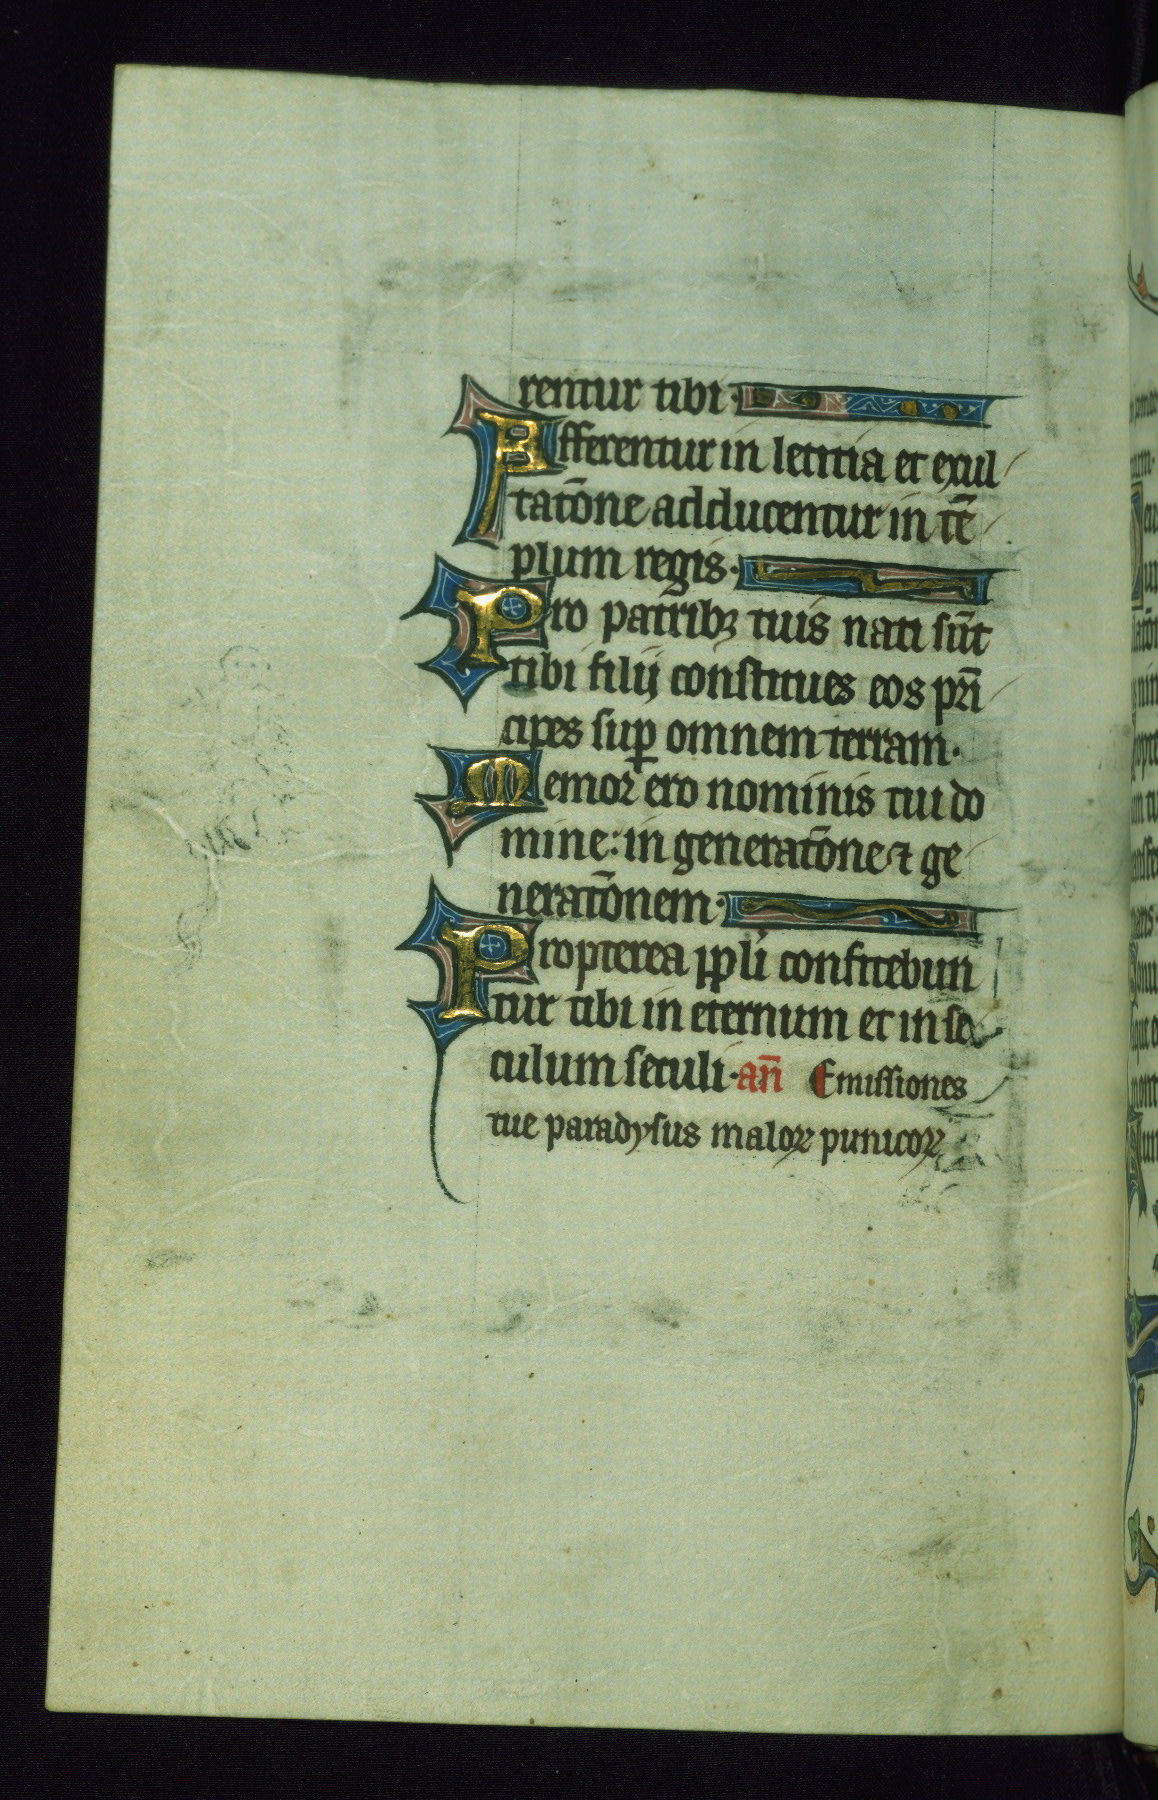 rentur tibi·
Afferentur in letitia et exul
tatōne adducentur in tē
plum regis·
Pro patribꝫ tuis nati sūt
tibi filij constitues eos pri̅
cipes suꝑ omnem terram·
Memor ero nominis tui do
mine: in generatōne ⁊ ge
neratōnem·
Propterea pp̅li confitebun
tur tibi in eternum et in se
culum seculi· an̅ Emissiones
tue paradysus maloꝝ punicoꝝ